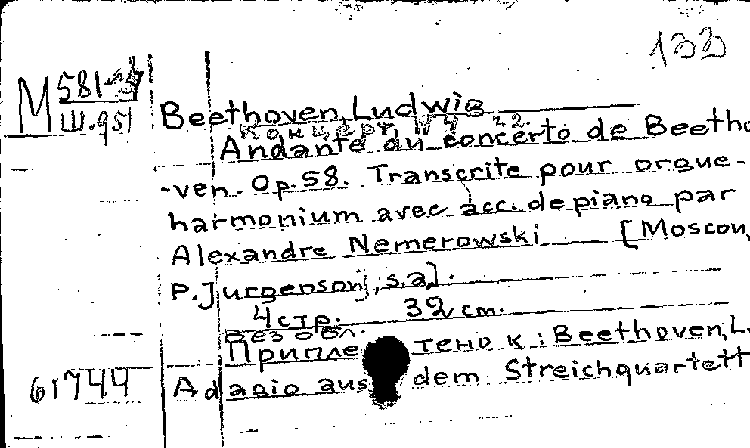 132
М 581
Ш.951
Beethoven, Ludwig
Концерт, №4
Andante du concerto de Beetho-
-ven. Op. 58. Transcrite pour orgue-
harmonium avec acc. de piano par
Alexandre Nemerowski [Moscou,
P. Jurgenson, s.a].
4 стр. 32 cm.
Без обл.
Припле тено к: Beethoven, L.
61744 Adagio aus dem Streichquartett